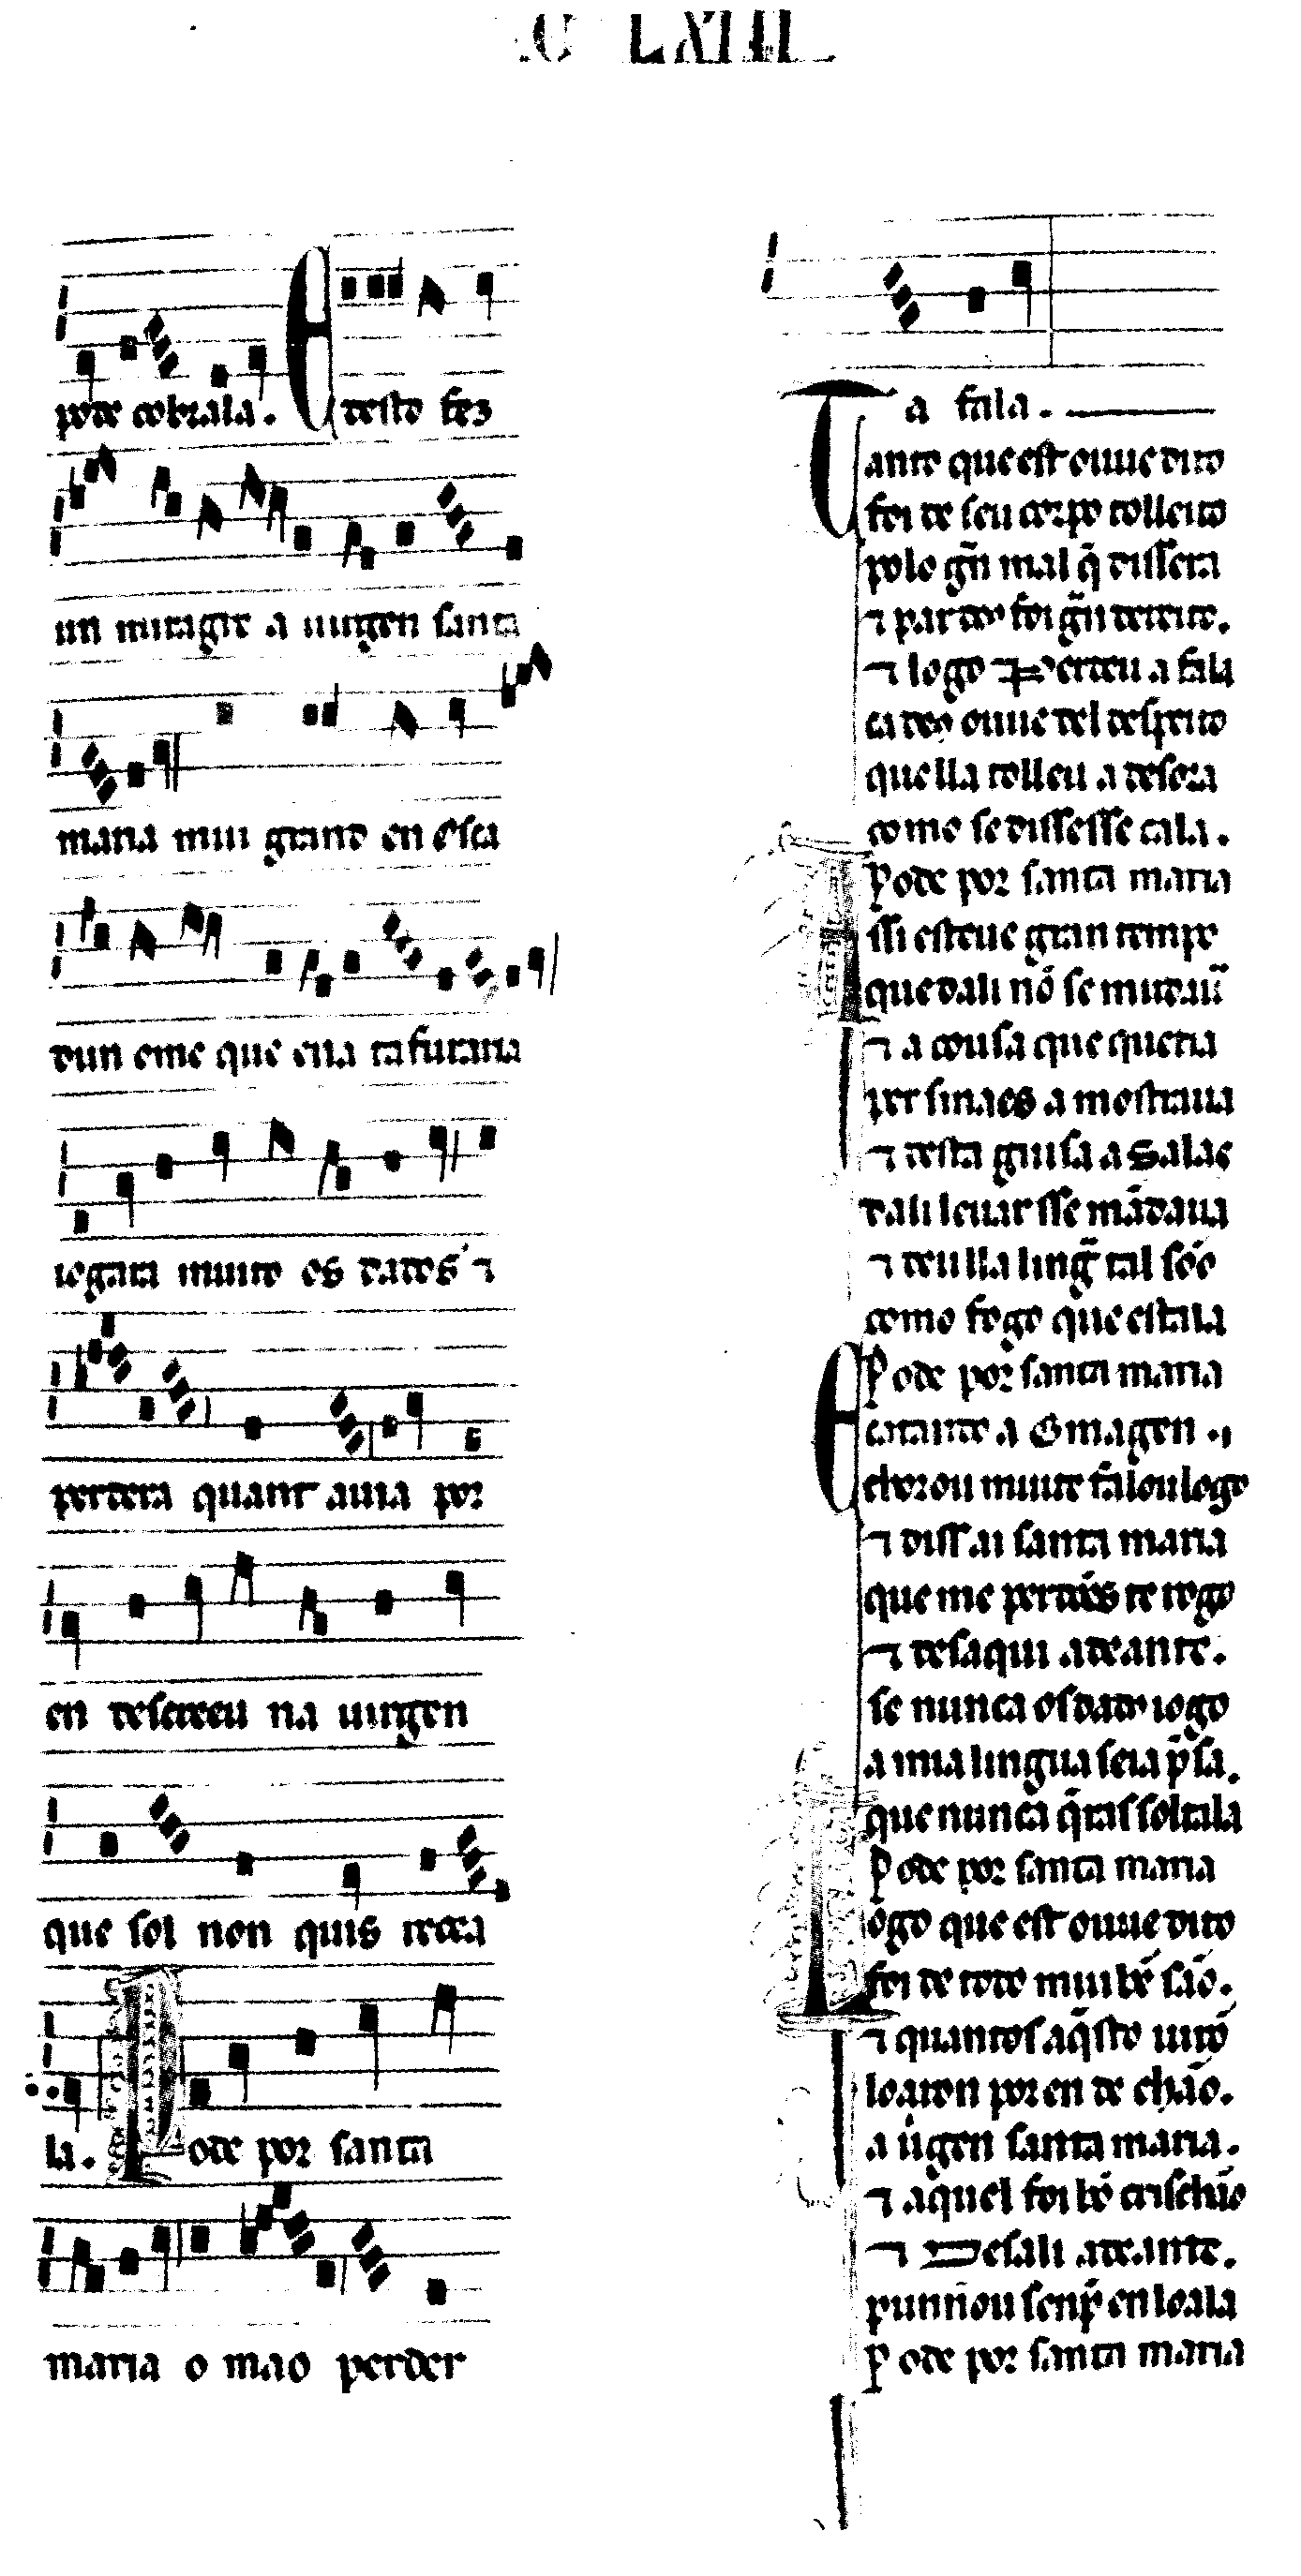 C LXIII
pode cobrala. E desto fez
un miragre a uirgen santa
maria mui grand en Osca
dun ome que en a tafuraria
iogara muito os dados ⁊
perdera quant auia por
en descreeu na uirgen
que sol non quis recea
la. Pode por santa
maria o mao perder
a fala.
Tanto que est ouue dito
foi de seu corpo tolleito
polo grã mal q̄ dissera
⁊ par de9 foi grã dereito.
⁊ logo ⁊ Perdeu a fala
ca de9 ouue del despeito
que lla tolleu a desora
como se dissesse cala.
Pode por santa maria
Assi esteue gran tempo
que dali nõ se mudaua
⁊ a cousa que queria
per sinaes a mostraua
⁊ desta guisa a Salas
dali leuar sse mãdaua
⁊ deulla ling̃ tal sõo
como fogo que estala
Pode por santa maria
E catando a Omagen
chorou muite falou logo
⁊ diss ai santa maria
que me perdões te rogo
⁊ desaqui adeante.
se nunca os dados iogo
a mia lingua seia p̃sa.
que nunca q̄ras soltala
Pode por santa maria
Logo que est ouue dito
foi de todo mui bẽ são.
⁊ quantos aq̄sto uirõ
loaron por en de chão.
a uirgen santa maria.
⁊ aquel foi bõ crischão
⁊ Desali adeante.
punnou senp̃ en loala
Pode por santa maria